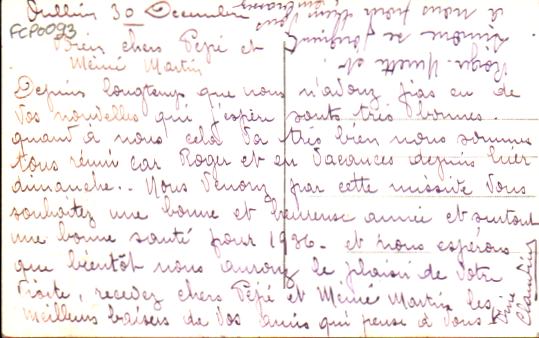 Oullins 30 Decembre
FCP0093
Bien chers Pépé et
Mémé Martin
Depuis longtemps que nous n'avonz pas eu de
vos nouvelles qui j'espère sont très bonnes.
quant à nous cela va très bien nous sommes
tous réuni car Roger et en vacances depuis hier
dimanche.. Nous venonz par cette missive vous
souhaitez une bonne et heureuse année et surtout
une bonne santé pour 1936. et nous espérons
que bientôt nous auronz le plaisir de votre
visite, recevez chers Pépé et Mémé Martin les
meilleurs baisers de vos amis qui pense à vous
Claudius
Roger. et
Simone se joignent
à nous pour